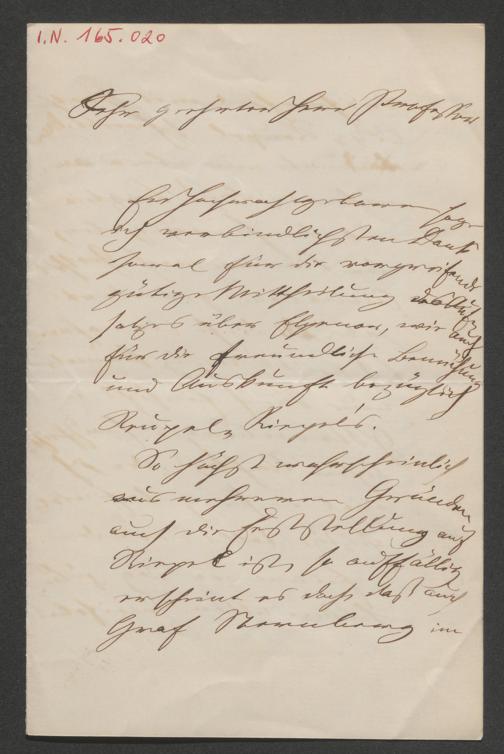 I.N. 165.020
Sehr geehrter Herr Professor
Euer Hochwohlgeboren sage
ich verbindlichsten Dank
sowol für die vorgreifende
gütige Mittheilung des Auf
satzes über Elgenor, wie auch
für die freundliche Bemühung
und Auskunft bezüglich
So höchst wahrscheinlich
aus mehreren Gründen
auch die Feststellung auf
Riepel ist, so auffällig
erscheint es doch daß auch
Graf Sternberg im